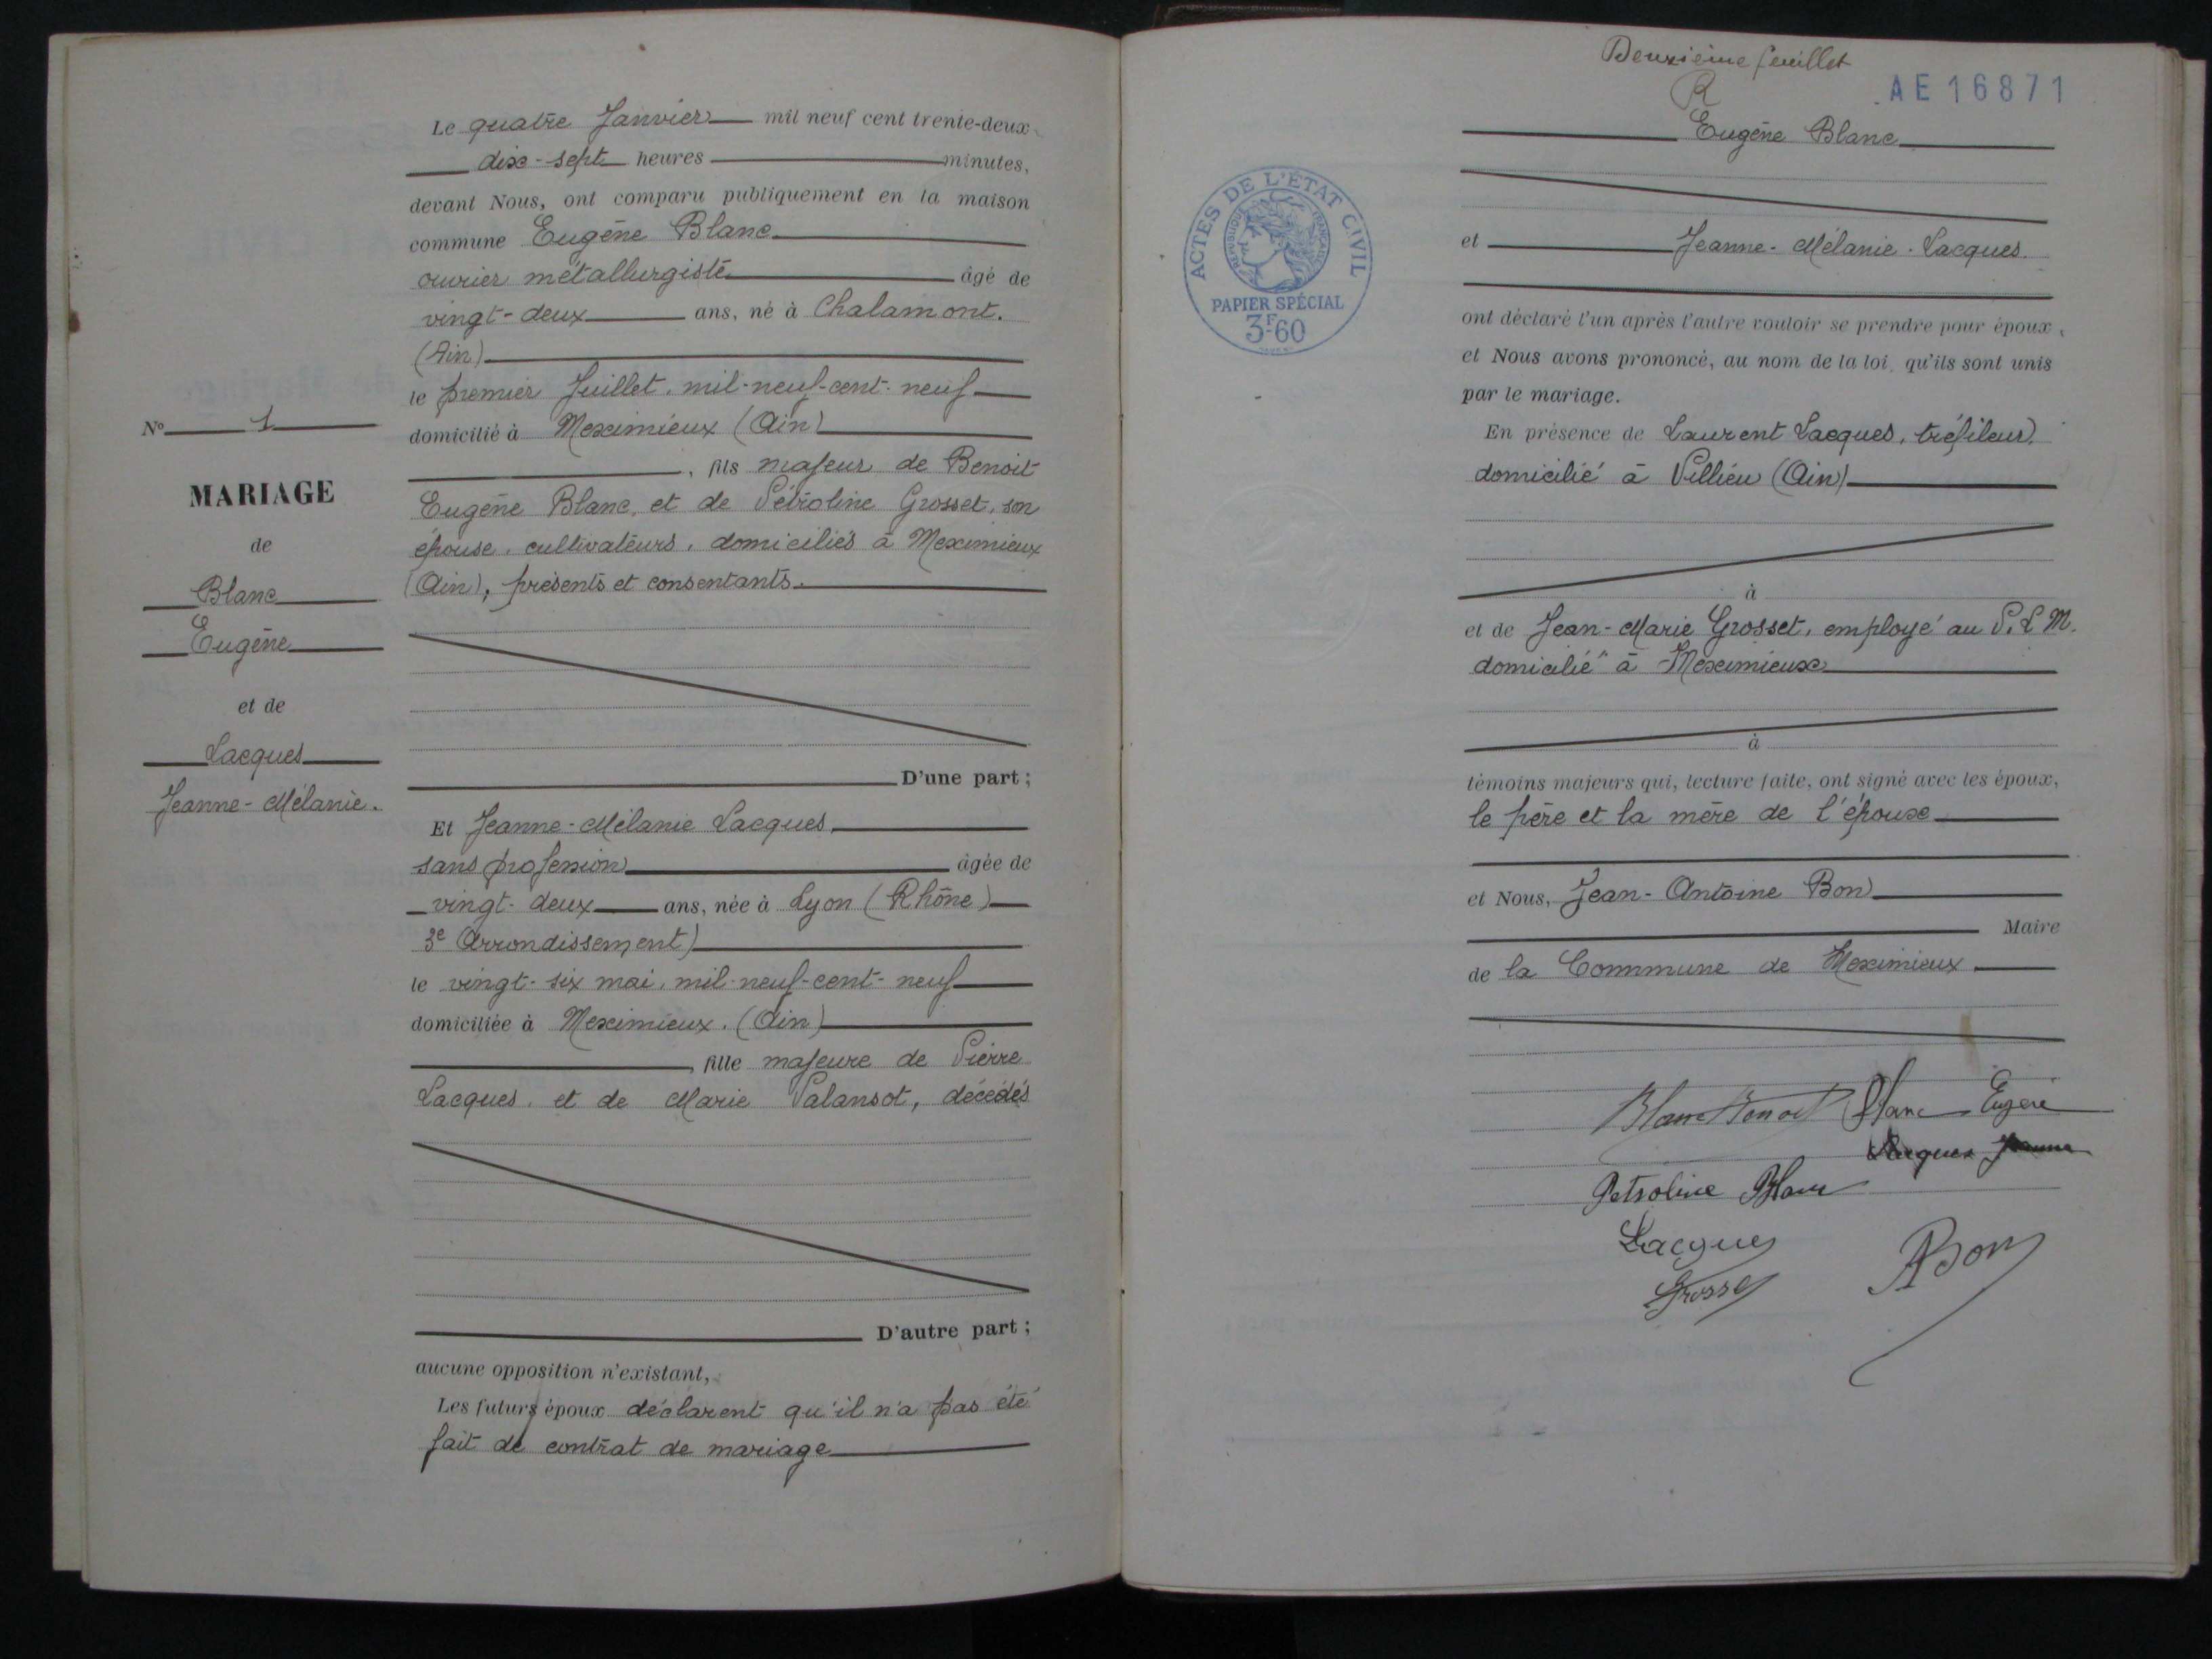 Le quatre Janvier mil neuf cent trente-deux
dix-sept heures minutes,
devant Nous, ont comparu publiquement en la maison
commune Eugène Blanc
ouvrier métallurgiste âgé de
vingt-deux ans, né à Chalamont.
(Ain)
le premier Juillet. mil-neuf-cent-neuf
domicilié à Meximieux (Ain)
, fils majeur de Benoit
Eugène Blanc, et de Pétroline Grosset, son
épouse, cultivateurs, domiciliés à Meximieux
(Ain), présents et consentants.
D'une part ;
Et Jeanne-Mélanie Lacques,
sans profession âgée de
vingt-deux ans, née à Lyon (Rhône)
3e Arrondissement)
le vingt-six mai, mil-neuf-cent-neuf
domiciliée à Meximieux. (Ain)
, fille majeure de Pierre
Lacques, et de Marie Palansot, décédés
D'autre part ;
aucune opposition n'existant,
Les futurs époux déclarent qu'il n'a pas été
fait de contrat de mariage
No 1
MARIAGE
de
Blanc
Eugène
et de
Lacques
Jeanne-Mélanie.
Deuxième feuillet
R
AE 16871
ACTES DE L'ÉTAT CIVIL
RÉPUBLIQUE FRANÇAISE
PAPIER SPÉCIAL
3F60
Eugène Blanc
et Jeanne-Mélanie-Lacques.
ont déclaré l'un après l'autre vouloir se prendre pour époux,
et Nous avons prononcé, au nom de la loi, qu'ils sont unis
par le mariage.
En présence de Laurent Lacques, tréfileur,
domicilié à Villieu (Ain)
à
et de Jean-Marie Grosset, employé au P.L.M.
domicilié à Meximieux
à
témoins majeurs qui, lecture faite, ont signé avec les époux,
le père et la mère de l'époux
et Nous, Jean-Antoine Bon
Maire
de la Commmune de Meximieux
Blanc Benoit Blanc Eugène
Lacques Jeanne
Petroline Blanc
Lacques
Grosset
ABon